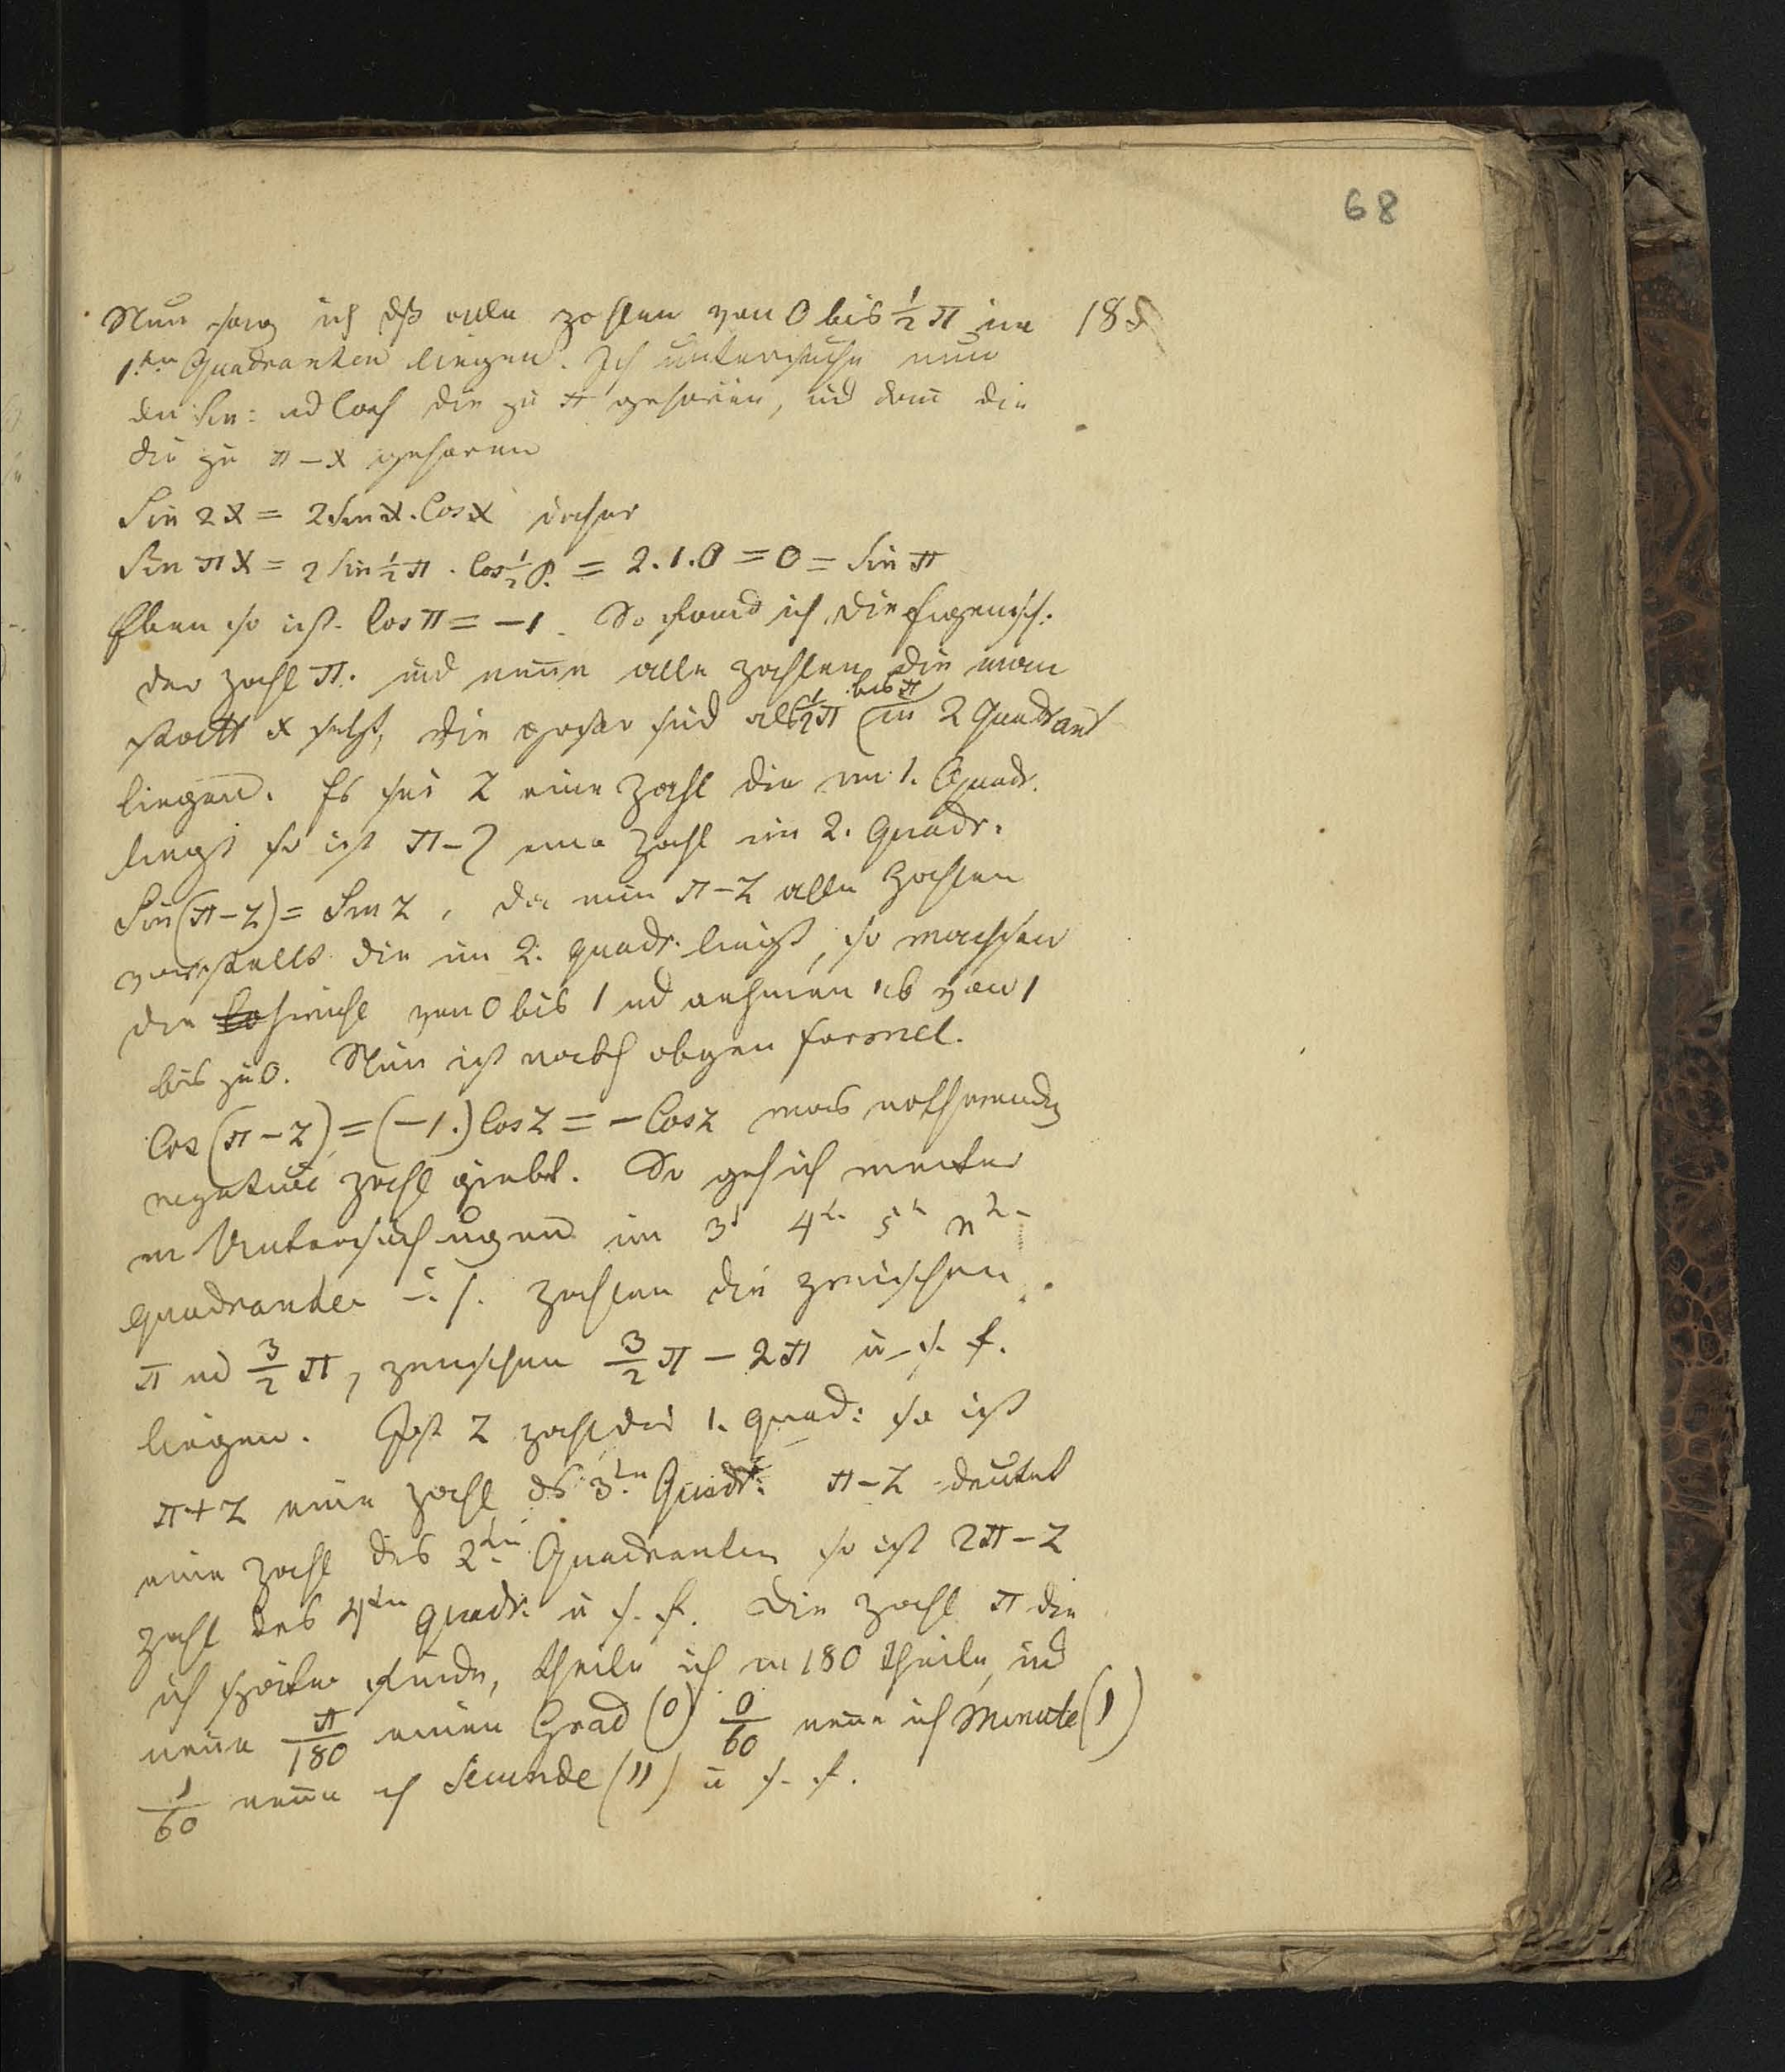 68
Nun sag ich dß alle zahlen von 0 bis ½ π im 18
1ten Quadranten liegen. Ich untersuche nun
den Sin: ud Cos die zu π gehören, ud dann die
die zu π – x gehören
Sin 2x = 2 Sin x . Cos x daher
Sin π x = 2 Sin ½ π . Cos ½ = 2.1.0 = 0 = Sin π
Eben so ist Cos π = –1. So fand ich die Eigensch:
der zahl π. ud nenne alle zahlen die man
statt x setzt, die großer sind als ½π bis π in 2 Quadrant
liegend. Es sei z eine Zahl die im 1. Quadr.
liegt so ist π – z eine Zahl im 2. Quadr.
Sin(π – z) = Sin z, da nun π – z alle Zahlen
vorstellt die im 2. quadr. liegt, so wachsen
die von 0 bis 1 ud nehmen ab von 1
bis zu 0. Nun ist nach obgen formel.
Cos (π – z) = (–1.) Cos z = – Cos z was nothwendig
negative zahl giebt. So geh ich weiter
in Untersuchungen im 3t 4t 5t n
quadranten zahlen die zwischen
π ud 3/2 π, zwischen 3/2 π – 2π u. s. f.
liegen. Ist z zahl des 1. quad: so ist
π + z eine zahl ds 3ten Quadr: π – z deutet
eine zahl des 2ten Quadranten so ist 2π – z
zahl des 4ten quadr. u s. f. Die zahl π die
ich später finde, theile ich in 180 theile, ud
nenne π/180 einen Grad (0) 0/60 nenne ich Minute (׀)
׀/60 nenne ich Secunde (׀׀) u s. f.